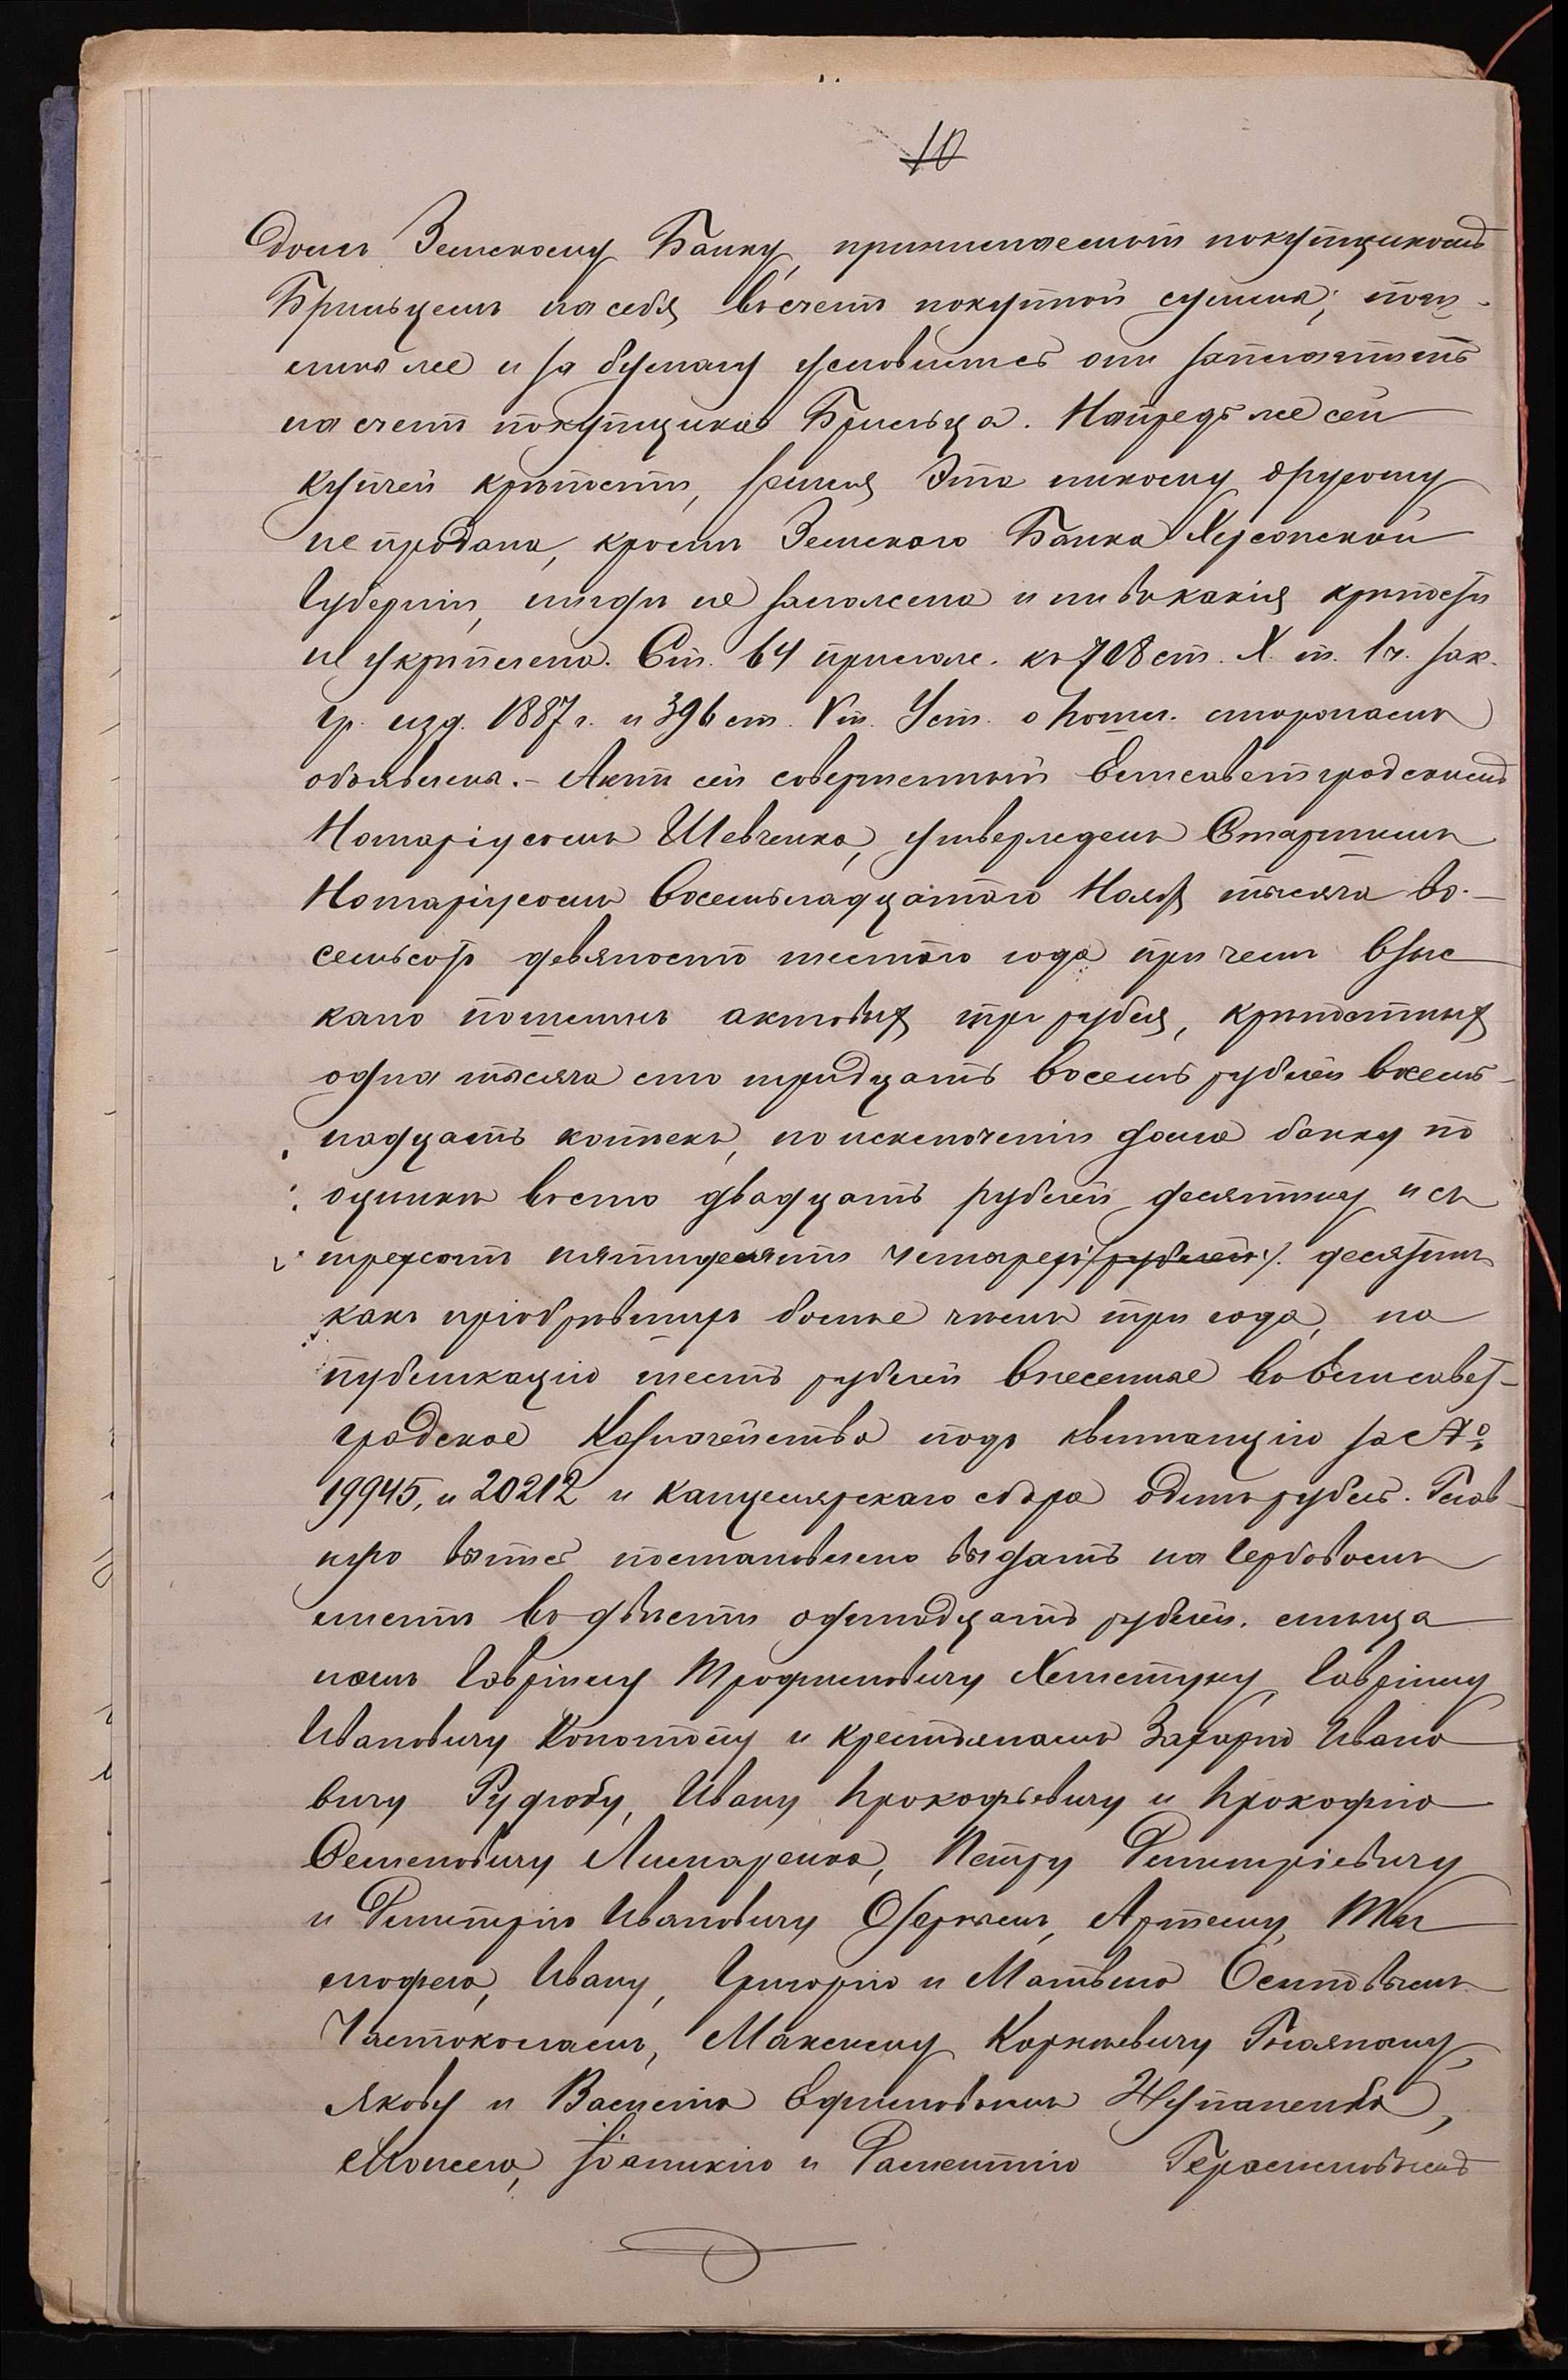 10
домъ Земскому Банку, принимаемомъ покупщикомъ
Брильцемъ на себя въ счетъ покупной суммы; пош-
лины же и за бумагу условились они заплатить
на счетъ покупщика Брильца. Напредь же сей
купчей крѣпости, земля эта никому другому
не продана, кромѣ Земскаго Банка Херсонской
Губерніи, нигдѣ не заложена и ни въ какія крѣпости
не укрѣплена. Ст. 64 прилож. къ 708 ст. X т. 1 ч. зак.
гр. изд. 1887 г. и 396 ст. V т. Уст. о пошл. сторонамъ
объявлена. – Актъ сей совершенный Елисаветградскимъ
Нотаріусомъ Шевченко, утвержденъ Старшимъ
Нотаріусомъ восемьнадцатаго Мая тысяча во-
семьсотъ девяносто шестого года при чемъ взыс
кано пошлинъ актовыхъ три рубля, крѣпостныхъ
одна тысяча сто тридцать восемь рублей восемь-
надцать копѣекъ, по исключеніи долга банку по
оцѣнкѣ во сто двадцать рублей десятину и съ
трехсотъ пятидесяти четырехъ /рублей/. десятинъ
какъ пріобрѣвшихъ болѣе чѣмъ три года, на
публикацію шесть рублей внесенные въ Елисавет-
градское Казначейство подъ квитанцію за №
19945, и 20212 и канцелярскаго сбора одинъ рубль. Глав-
ную выпись постановлено выдать на гербовомъ
листѣ въ двѣсти одинадцать рублей.
намъ Гаврілу Трофимовичу Гаврілу
Ивановичу Конотопу и крестьянамъ Захарію Ивано
вичу Рудобу, Ивану Прокофьевичу и Прокофію
Семеновичу Лимаренко, Петру Димитріевичу
и Димитрію Ивановичу Озернымъ, Артему, Ти
мофею, Ивану, Григорію и Матвѣю Осиповымъ
Частоколамъ, Максиму Корнѣевичу
Якову и Василію Ефимовымъ Жупаненко,
Моисею, Іоаникію и Герасимовымъ